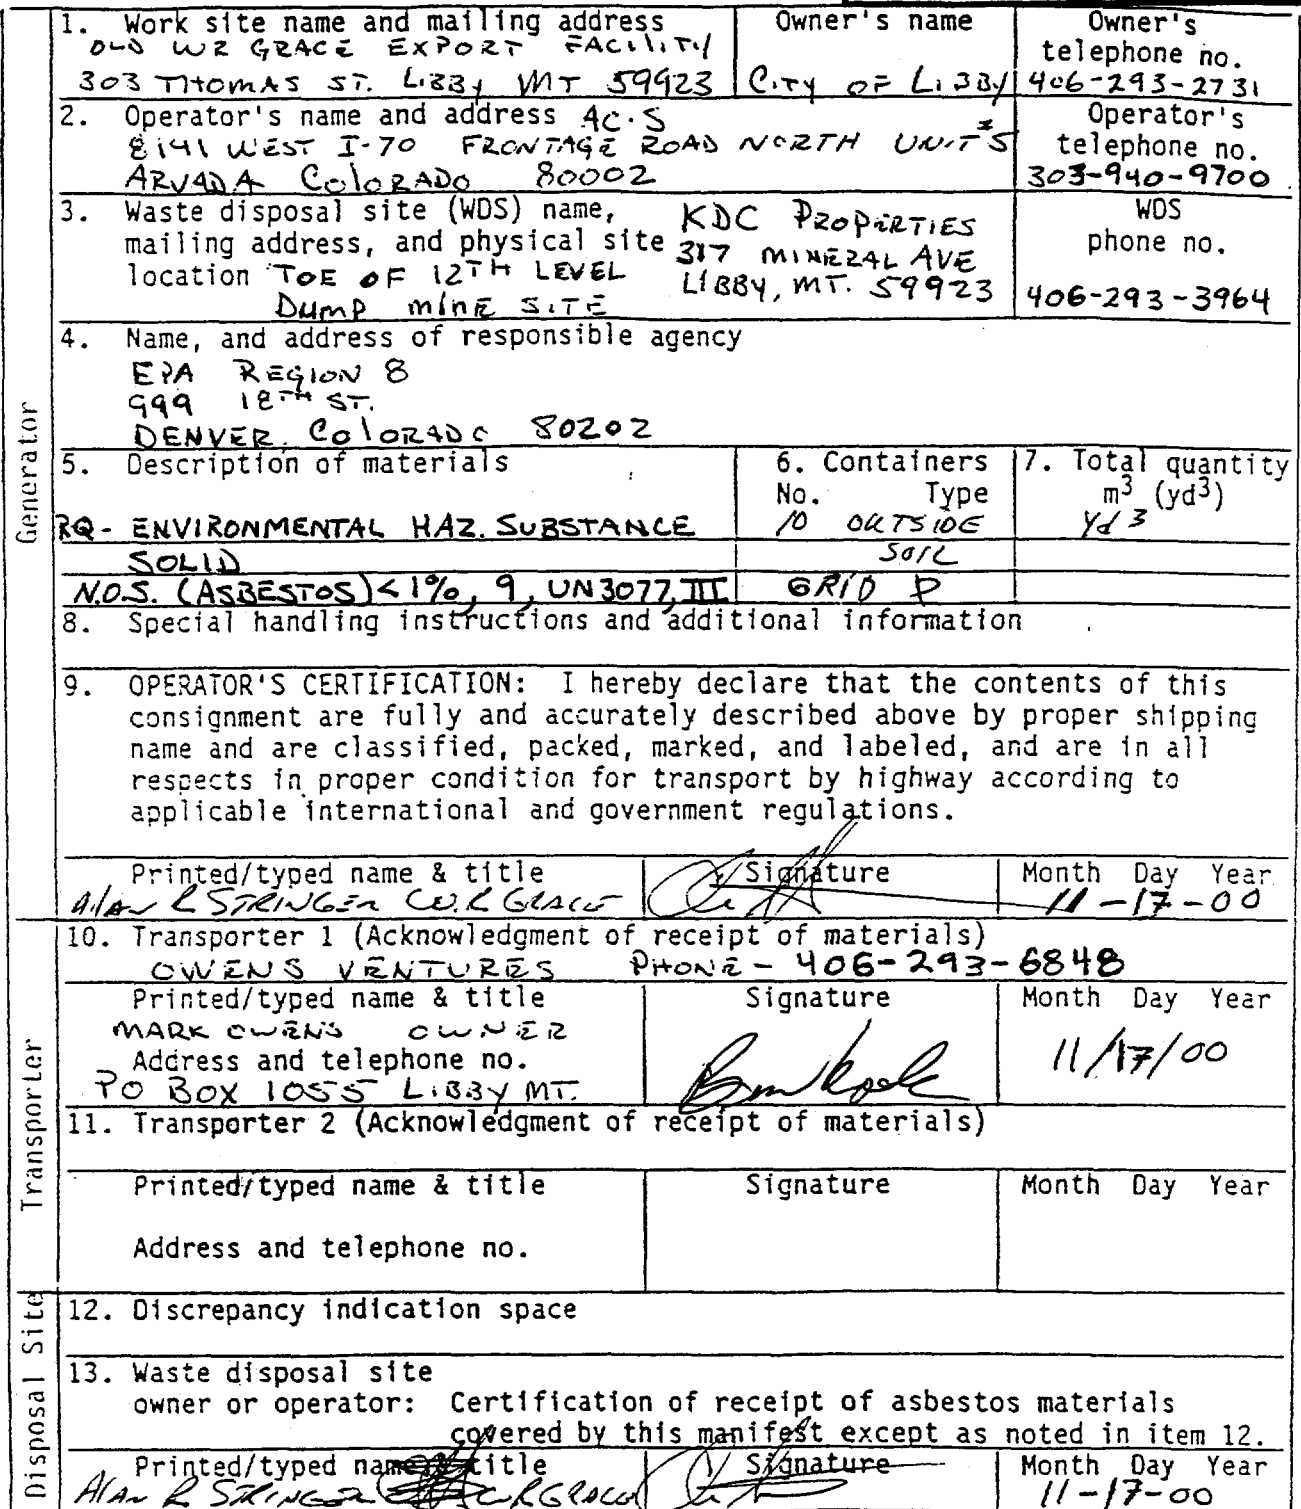 1. Work site name and mailing address
OLD WR GRACE EXPORT FACILITY
303 THOMAS ST. LIBBY MT 59923
Owner's name
CITY OF LIBBY
Owner's
telephone no.
406-293-2731
2. Operator's name and address AC.S
8141 WEST I-70 FRONTAGE ROAD NORTH UNIT #5
ARVADA COLORADO 80002
Operator's
telephone no.
303-940-9700
3. Waste disposal site (WDS) name,
mailing address, and physical site
location TOE OF 12TH LEVEL
DUMP MINE SITE
KDC PROPERTIES
317 MINERAL AVE
LIBBY, MT. 59923
WDS
phone no.
406-293-3964
4. Name, and address of responsible agency
EPA REGION 8
999 18TH ST.
DENVER, COLORADO 80202
Generator
5. Description of materials
RQ - ENVIRONMENTAL HAZ. SUBSTANCE
SOLID
N.O.S. (ASBESTOS) <1%, 9, UN3077, III
6. Containers
No. Type
10 OUTSIDE
SOIL
GRID D
7. Total quantity
m3 (yd3)
Yd3
8. Special handling instructions and additional information
9. OPERATOR'S CERTIFICATION: I hereby declare that the contents of this
consignment are fully and accurately described above by proper shipping
name and are classified, packed, marked, and labeled, and are in all
respects in proper condition for transport by highway according to
applicable international and government regulations.
Printed/typed name & title
Alan R STRINGER W.R GRACE
Signature
Month Day Year
11-17-00
10. Transporter 1 (Acknowledgment of receipt of materials)
OWENS VENTURES PHONE - 406-293-6848
Printed/typed name & title
MARK OWENS OWNER
Address and telephone no.
PO BOX 1055 LIBBY MT.
Signature
Month Day Year
11/17/00
Transporter
11. Transporter 2 (Acknowledgment of receipt of materials)
Printed/typed name & title
Address and telephone no.
Signature
Month Day Year
Disposal Site
12. Discrepancy indication space
13. Waste disposal site
owner or operator: Certification of receipt of asbestos materials
covered by this manifest except as noted in item 12.
Printed/typed name & title
Alan R STRINGER W R GRACE
Signature
Month Day Year
11-17-00